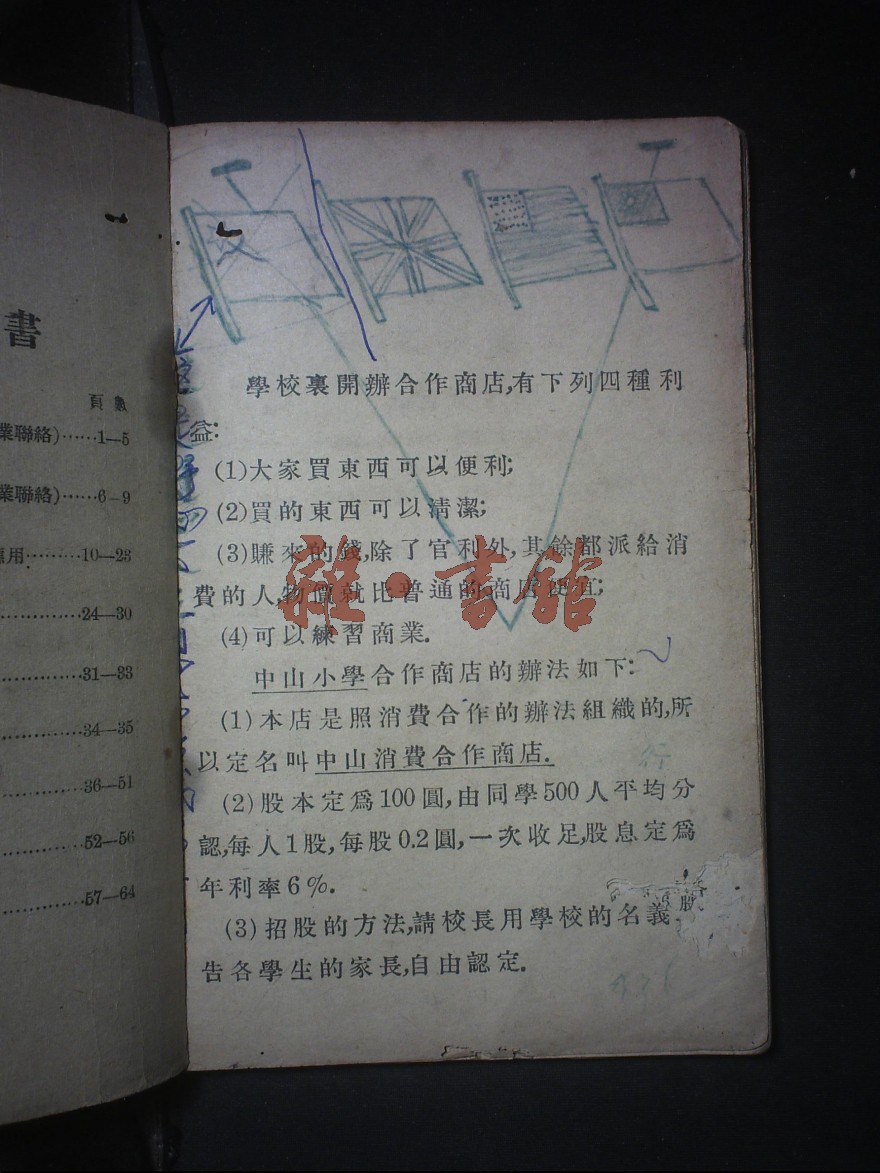 書
頁數
業聯絡)……1—5
業聯絡)……6—9
應用………10—23
…………24—30
…………31—33
…………34—35
…………36—51
…………52—56
…………57—64
學校裏開辦合作商店,有下列四種利
益:
(1)大家買東西可以便利;
(2)買的東西可以清潔;
(3)賺來的錢,除了官利外,其餘都派給消
費的人,物價就比普通的商店便宜;
(4)可以練習商業.
中山小學合作商店的辦法如下:
(1)本店是照消費合作的辦法組織的,所
以定名叫中山消費合作商店.
(2)股本定爲100圓,由同學500人平均分
認,每人1股,每股0.2圓,一次收足,股息定爲
年利率6%.
(3)招股的方法,請校長用學校的名義
告各學生的家長,自由認定.
股
行
雜·書館